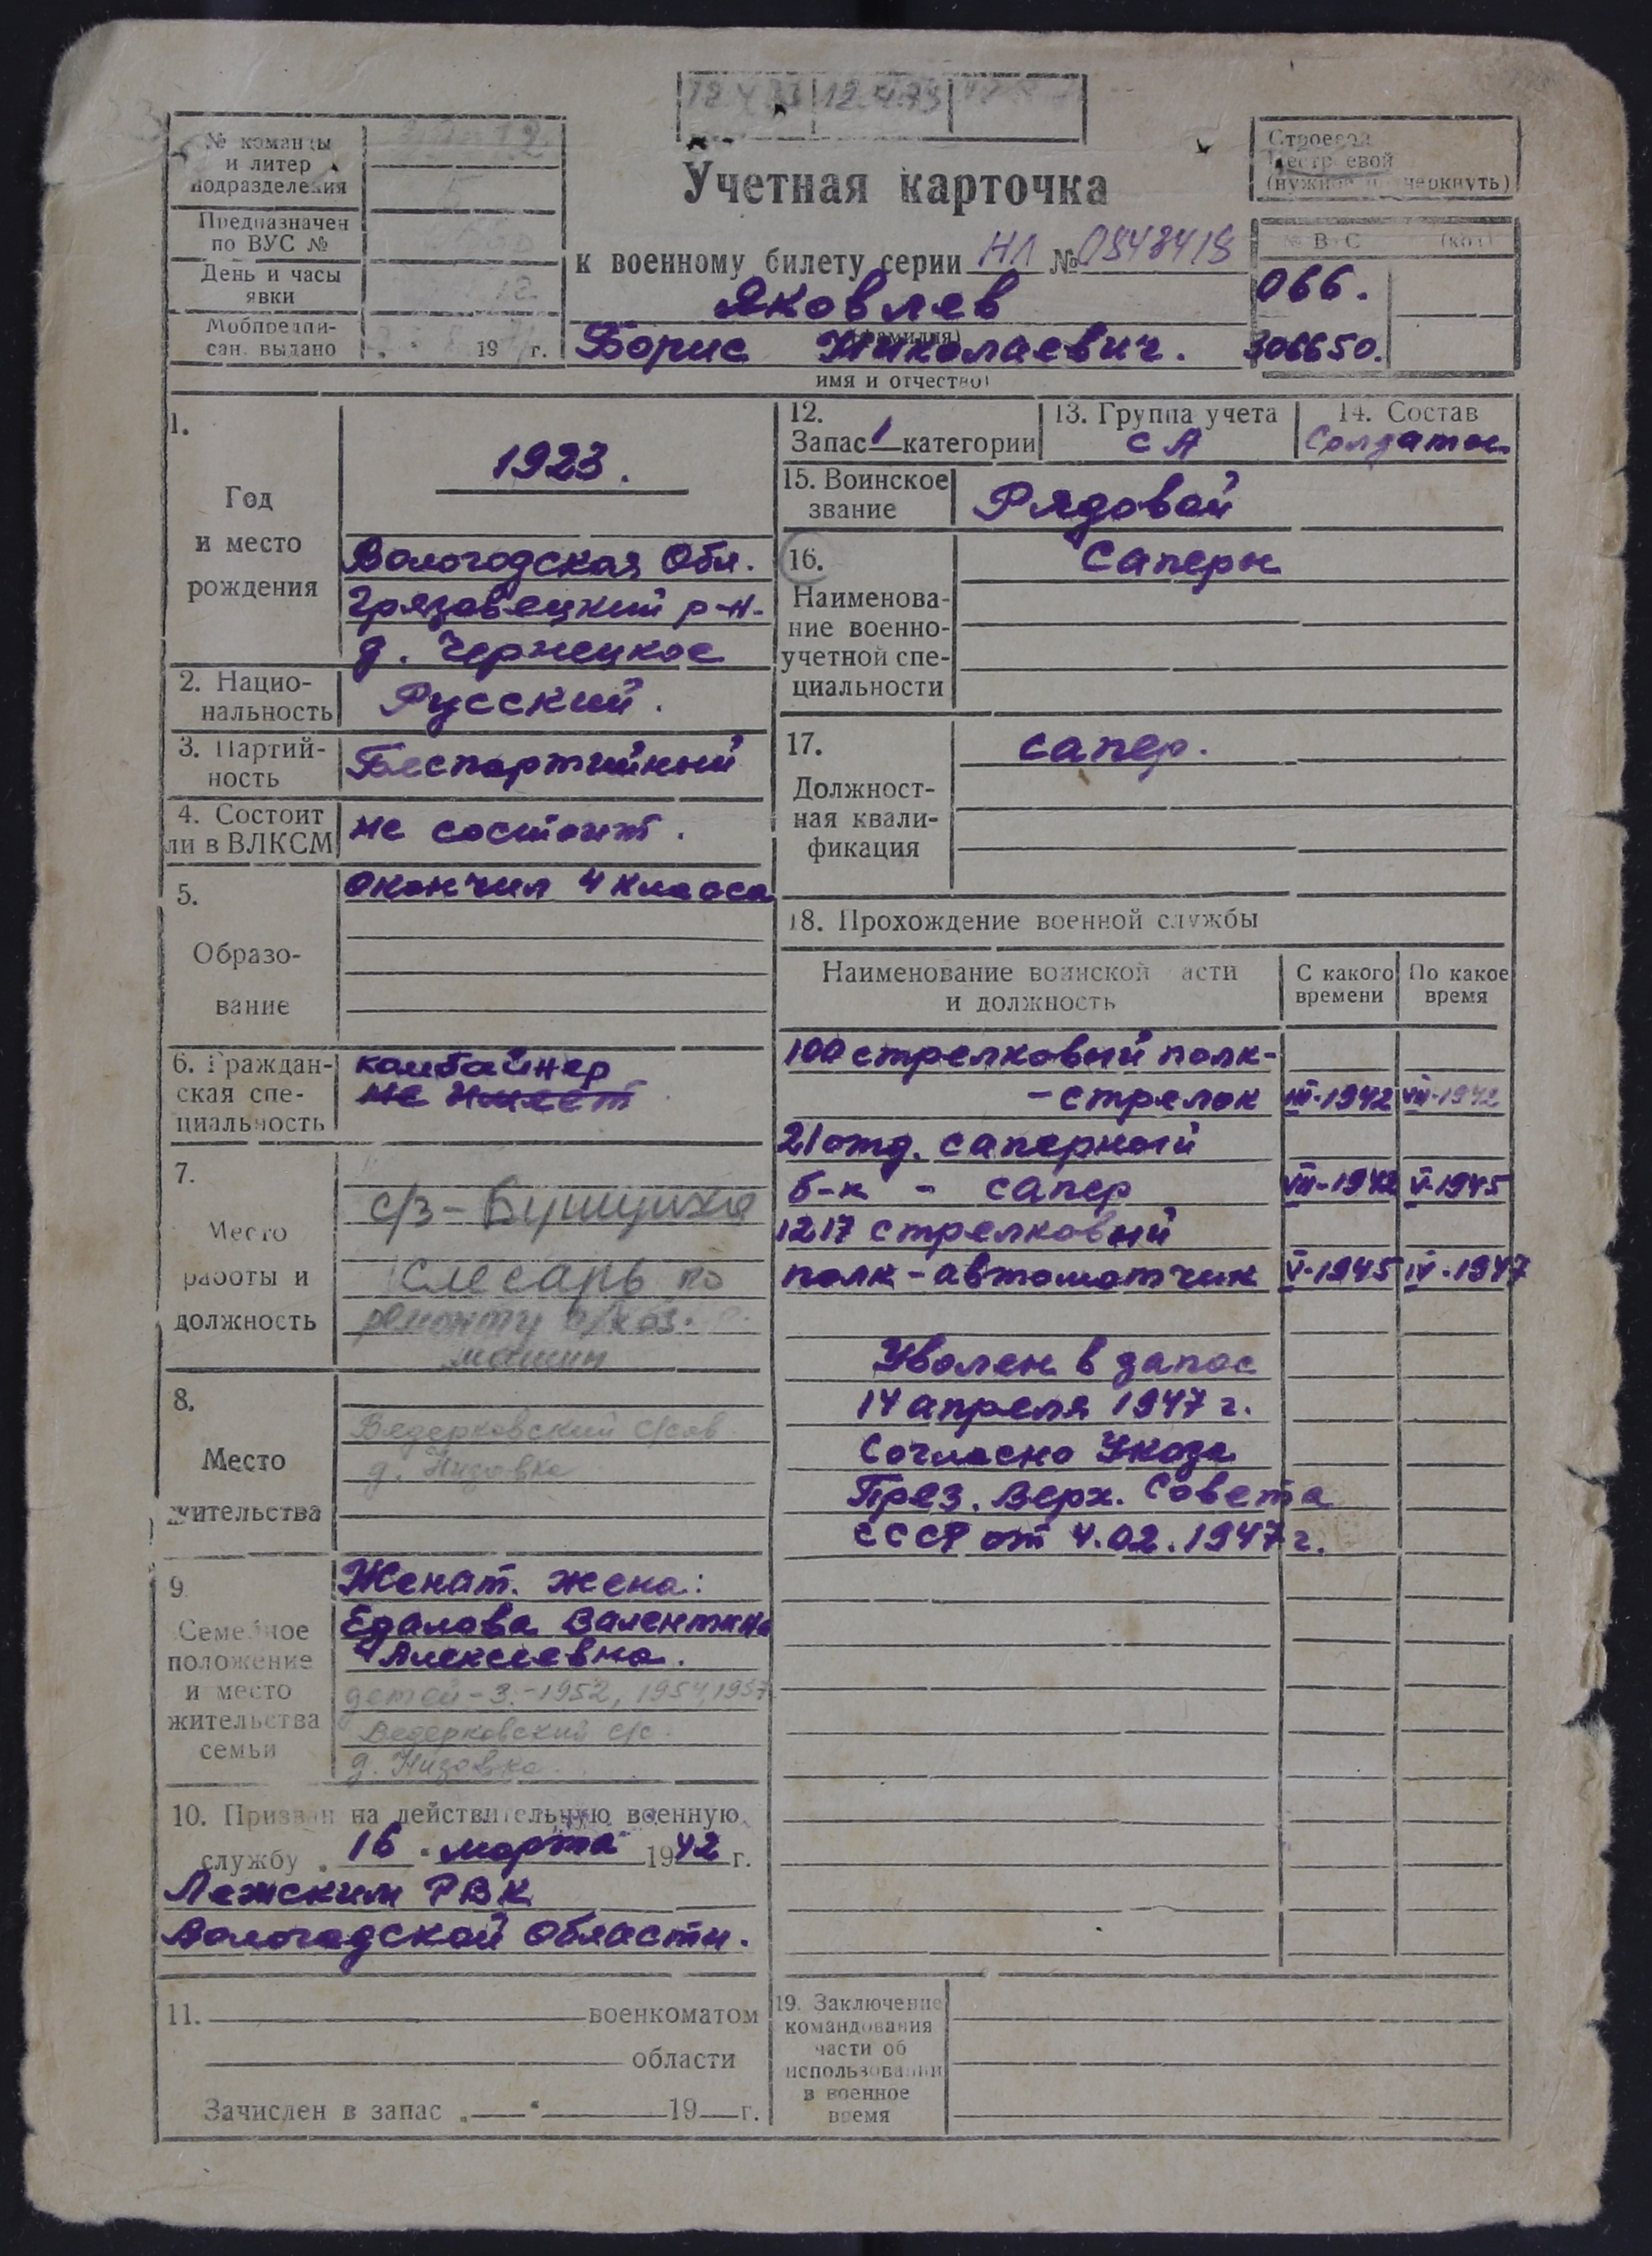 12.4.73 12.4.73
№ команды
и литер
подразделения
Предназначен
по ВУС №
День и часы
явки
Мобпредпи-
сан. выдано 19 г.
Учетная карточка
к военному билету серии НЛ № 0848418
Яковлев
(фамилия)
Борис Николаевич.
имя и отчество)
Строевой
Нестроевой
(нужное подчеркнуть)
№ ВУС (код)
066.
306650.
1.
Год
и место
рождения
1923.
Вологодская Обл.
Грязовецкий р-н.
д. Чернецкое
2. Нацио-
нальность
Русский.
3. Партий-
ность
Беспартийный
4. Состоит
ли в ВЛКСМ
не состоит.
5.
Образо-
вание
окончил 4 класса
6. Граждан-
ская спе-
циальность
комбайнер
не имеет
7.
Место
работы и
должность
с/з - Бушуиха
слесарь по
ремонту с/хоз.
машин
8.
Место
жительства
Ведерковский с/сов
д. Низовка
9.
Семейное
положение
и место
жительства
семьи
Женат. жена:
Едалова Валентина
Алексеевна.
детей - 3. - 1952, 1954, 1957
Ведерковский с/с.
д. Низовка.
10. Призван на действительную военную
службу „16“ марта 1942 г.
Лежским РВК
Вологодской области.
11. военкоматом
области
Зачислен в запас „ “ 19 г.
12.
Запас 1 категории
13. Группа учета
СА
14. Состав
Солдатск.
15. Воинское
звание
Рядовой
16.
Наименова-
ние военно-
учетной спе-
циальности
Саперн
17.
Должност-
ная квали-
фикация
сапер.
18. Прохождение военной службы
Наименование воинской части
и должность
С какого
времени
По какое
время
100 стрелковый полк-
- стрелок III-1942 VII-1942
21 отд. саперный
б-н - сапер VII-1942 V-1945
1217 стрелковый
полк - автоматчик V-1945 IV-1947
Уволен в запас
14 апреля 1947 г.
Согласно Указа
През. Верх. Совета
СССР от 4.02.1947 г.
19. Заключение
командования
части об
использовании
в военное
время